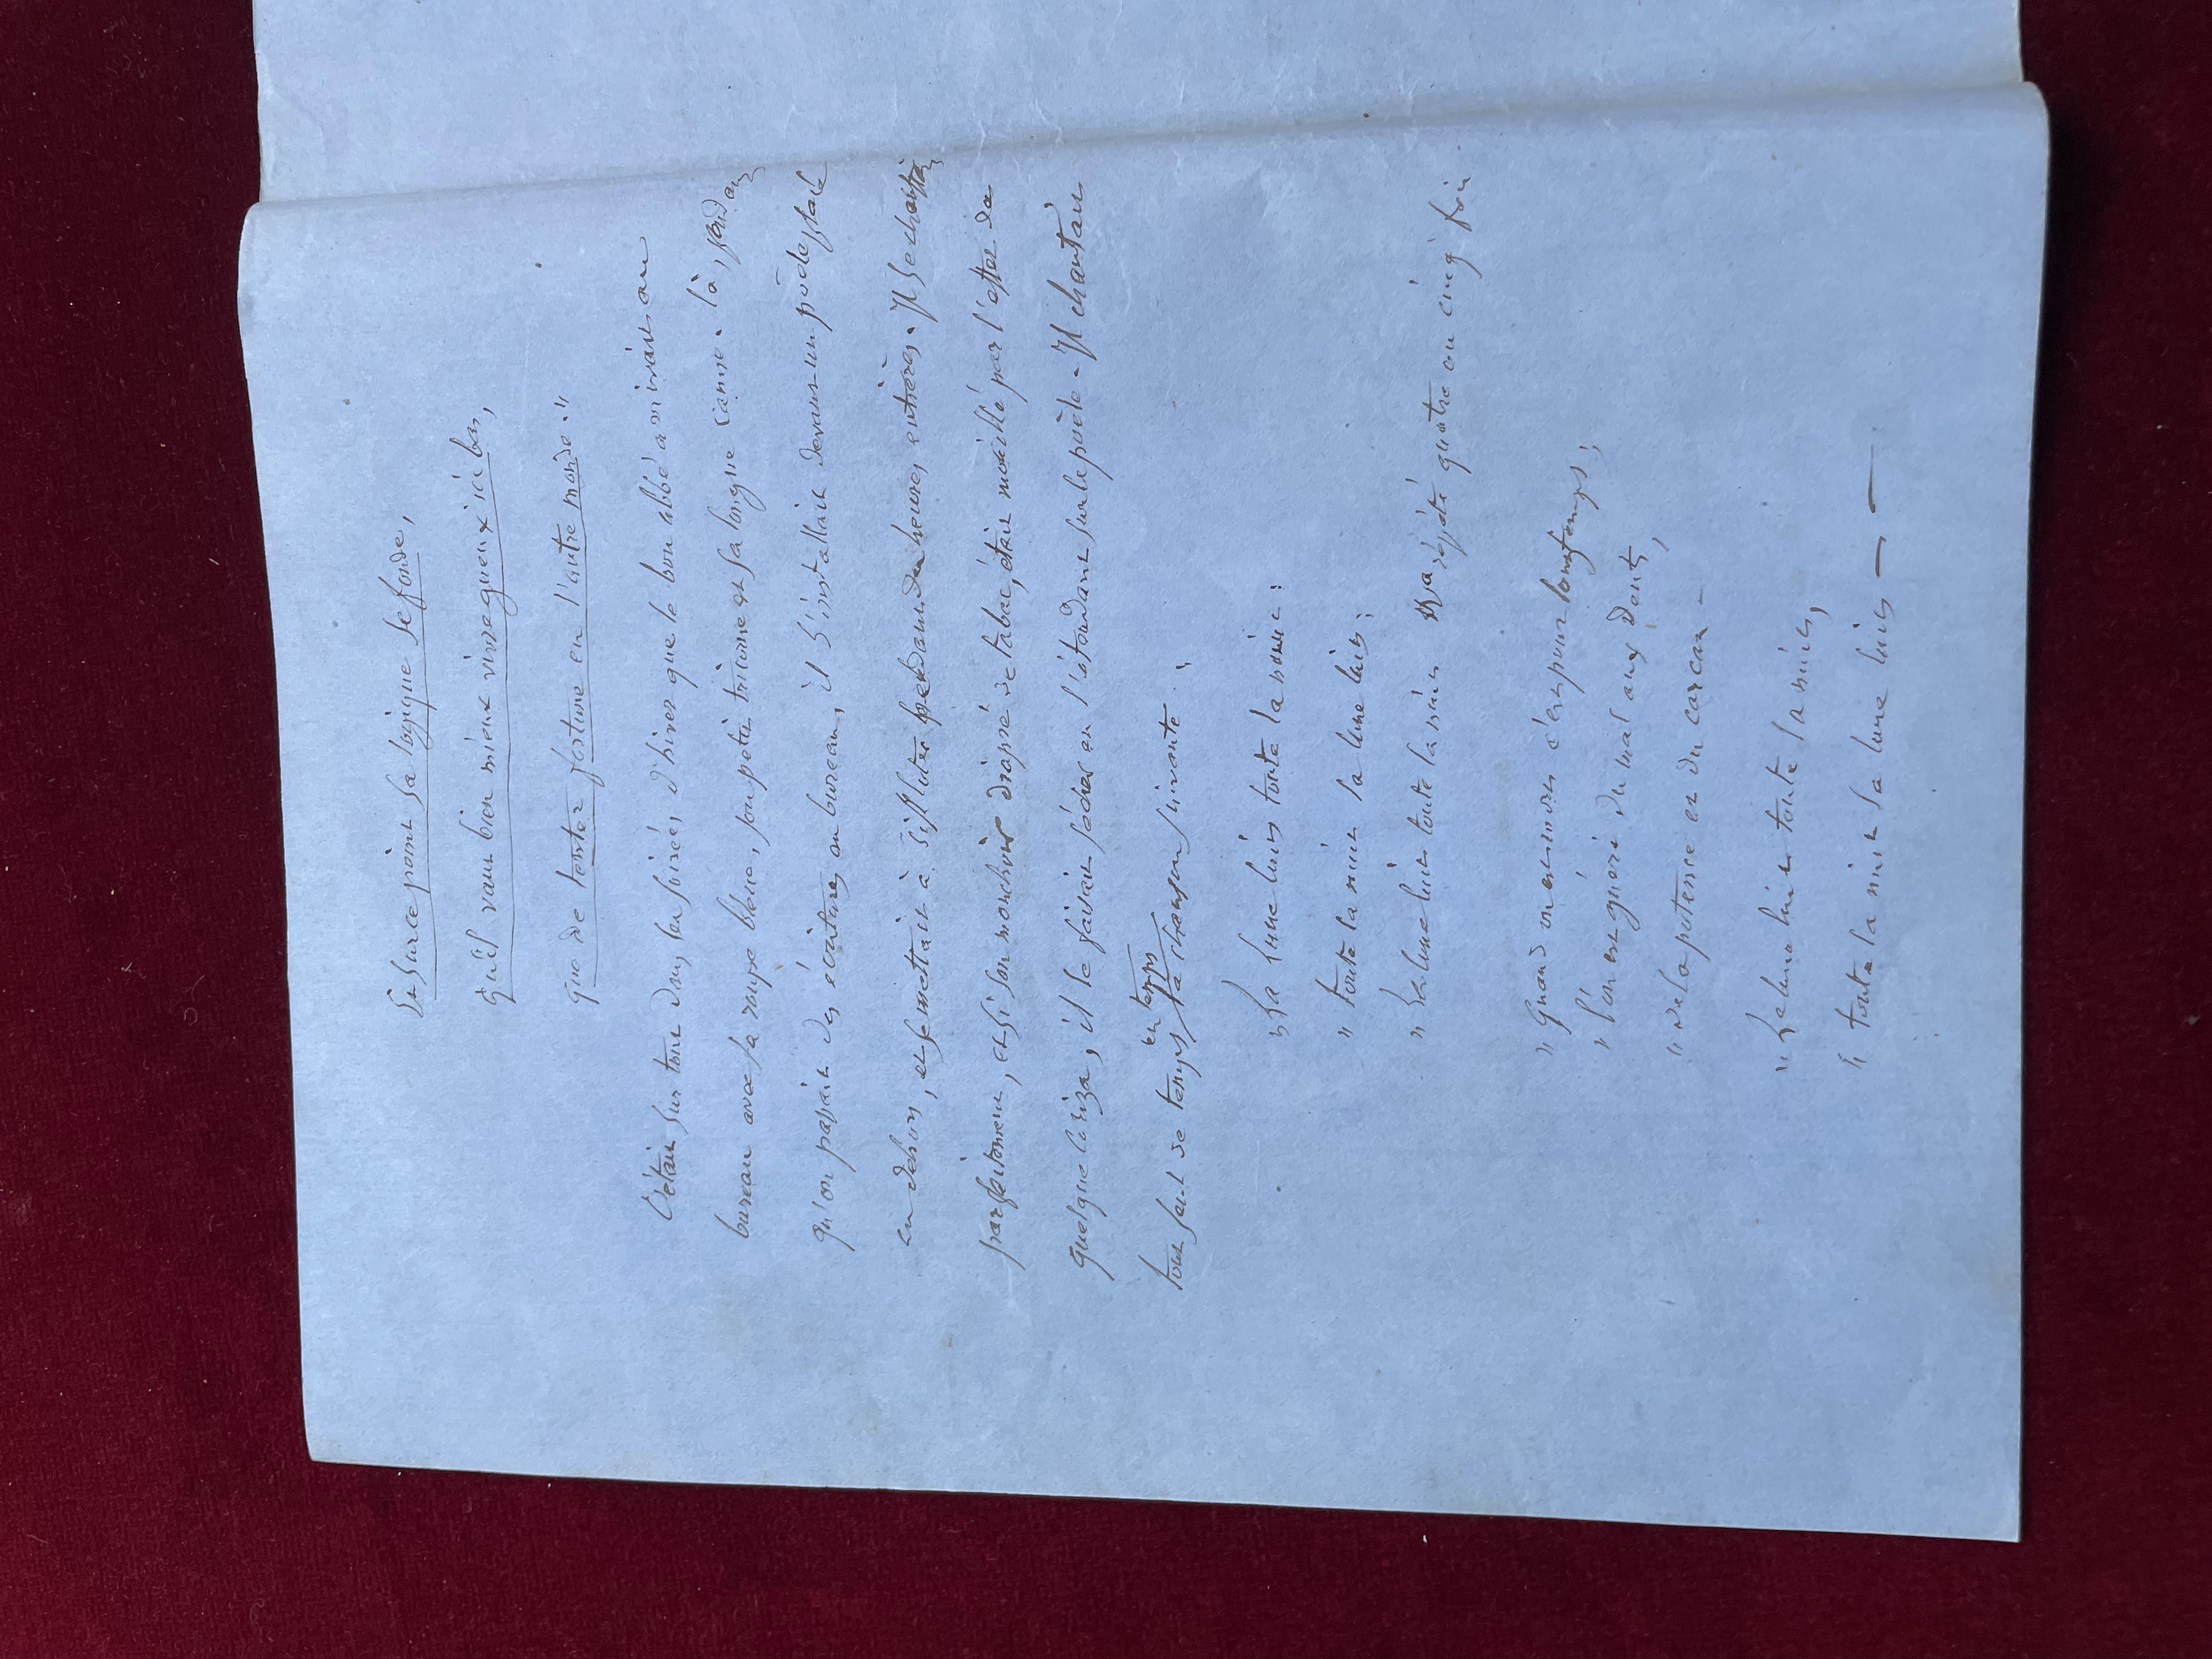 Et sur ce point sa logique se fonde,
qu'il vaut bien mieux vivre gueux ici bas,
que de tenter fortune en l'autre monde."
C'était sur tout dans les soirées d'hiver que le bon abbé arrivait au
bureau avec sa roupe bleue, son petit tricorne et sa longue canne. là, pendant
qu'on passait des écritures au bureau, il s'installait devant un poële placé
en dehors, et se mettait à siffloter pendant des heures entières. Il se chauffait
parfaitement, et si son mouchoir diapré de tabac, était mouillé par l'effet de
quelque , il le faisait sécher en l'étendant sur le poële - Il chantait
tout seul de temps en temps la chanson suivante :
" La lune luit toute la nuit :
" toute la nuit la lune luit ;
" La lune luit toute la nuit répété quatre ou cinq fois
" Quand on est mort c'est pour longtemps ;
" l'on est guéri du mal aux dents,
" de la potence et du carcan -
" La lune luit toute la nuit,
" toute la nuit la lune luit — —